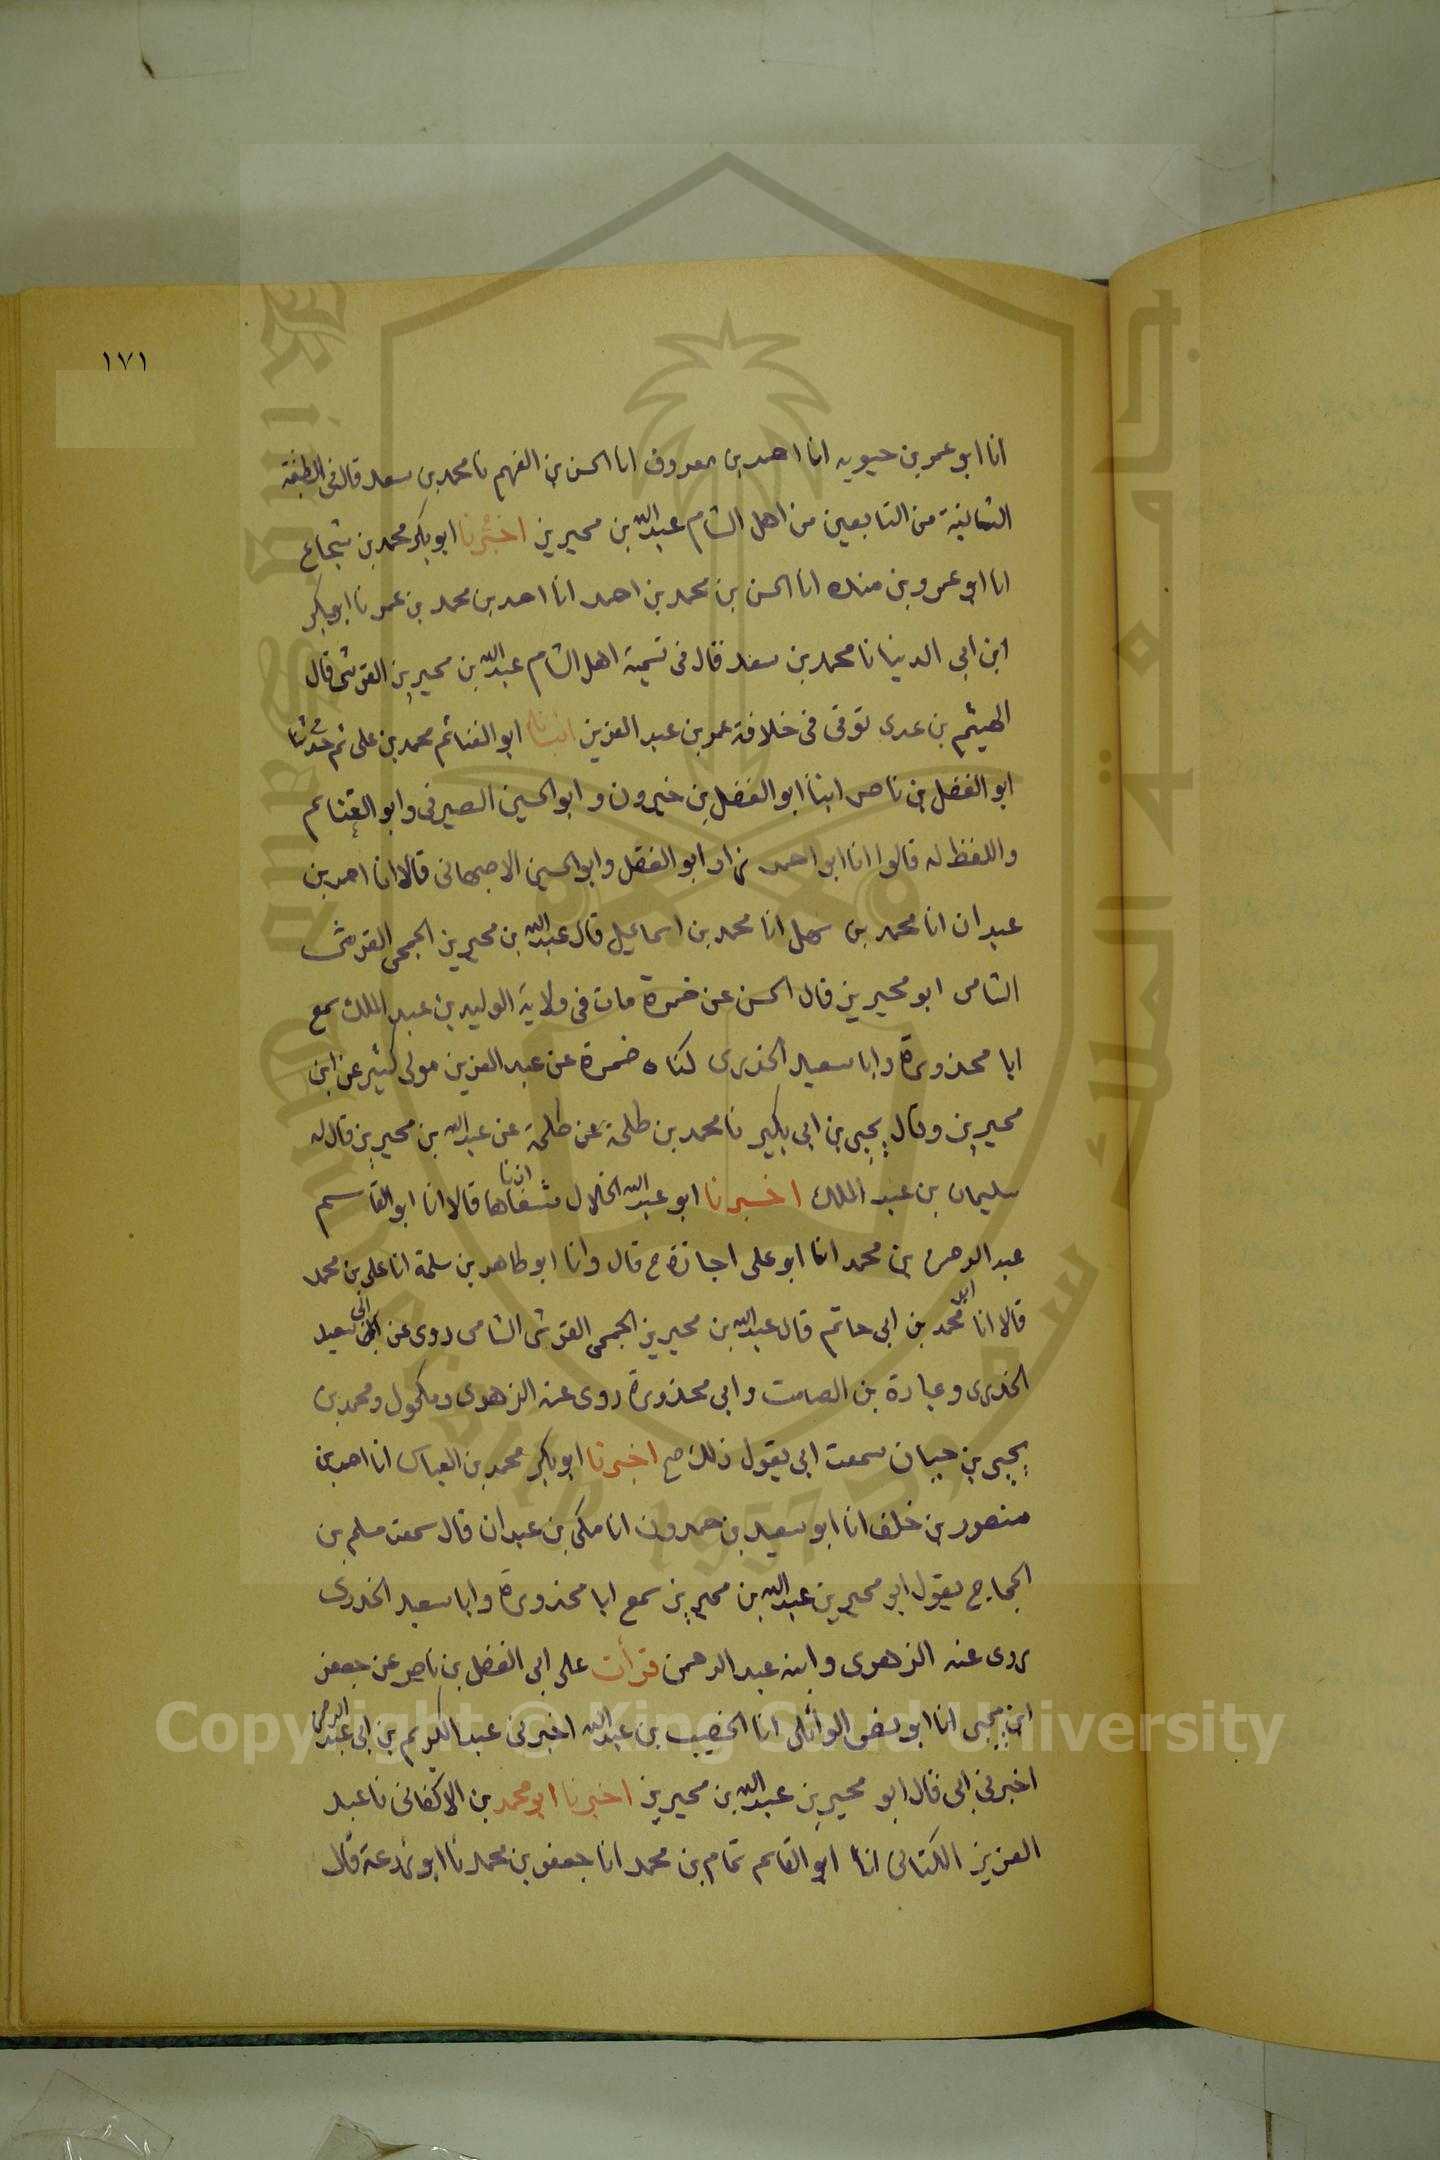 ١٧١
انا ابو عمر بن حيويه انا احمد بن معروف انا الحسن بن الفهم نا محمد بن سعد قال فى الطبقة
الثانية من التابعين من اهل الشام عبد الله بن محيريز اخبرنا ابو بكر محمد بن شجاع
انا ابو عمرو بن منده انا الحسن بن محمد بن احمد انا احمد بن محمد بن عمر نا ابو بكر
ابن ابى الدنيا نا محمد بن سعد قال فى تسمية اهل الشام عبد الله بن محيريز القرشى قال
الهيثم بن عدى توفى فى خلافة عمر بن عبد العزيز انبانا ابو الغنائم محمد بن على ثم حدثنا
ابو الفضل بن ناصر ابنا ابو الفضل بن خيرون و ابو الحسين الصيرفى و ابو الغنائم
واللفظ له قالوا انا ابو احمد زاد ابو الفضل وابو الحسين الاصبهانى قالا انا احمد بن
عبدان انا محمد بن سهل انا محمد بن اسماعيل قال عبد الله بن محيريز الجمحى القرشى
الشامى ابو محيريز قال الحسن عن ضمرة مات فى ولاية الوليد بن عبد الملك سمع
ابا محذورة وابا سعيد الخدرى كناه ضمرة عن عبد العزيز مولى كثير عن ابن
محيريز وقال يحيى بن ابى بكير نا محمد بن طلحة عن طلحة عن عبد الله بن محيريز قال له
سليمان بن عبد الملك اخبرنا ابو عبد الله الخلال شفاها قالا انا ابو القاسم
عبد الرحمن بن محمد انا ابو على اجازة ح قال وانا ابو طاهر بن سلمة انا على بن محمد
قالا انا ابو محمد بن ابى حاتم قال عبد الله بن محيريز الجمحى القرشى الشامى روى عن ابى سعيد
الخدرى وعبادة بن الصامت وابى محذورة روى عنه الزهرى ومكحول ومحمد بن
يحيى بن حبان سمعت ابى يقول ذلك ح اخبرنا ابو بكر محمد بن العباس انا احمد بن
منصور بن خلف انا ابو سعيد بن حمدون انا مكى بن عبدان قال سمعت مسلم بن
الحجاج يقول ابو محيريز عبد الله بن محيريز سمع ابا محذورة وابا سعيد الخدرى
روى عنه الزهرى وابنه عبد الرحمن قرأت على ابى الفضل بن ناصر عن جعفر
ابن يحيى انا ابو نصر الوائلى انا الخصيب بن عبد الله اخبرنى عبد الكريم بن ابى عبد الرحمن
اخبرنى ابى قال ابو محيريز عبد الله بن محيريز اخبرنا ابو محمد بن الاكفانى نا عبد
العزيز الكتانى انا ابو القاسم تمام بن محمد انا جعفر بن محمد نا ابو زرعة قال
Copyright © King Saud University